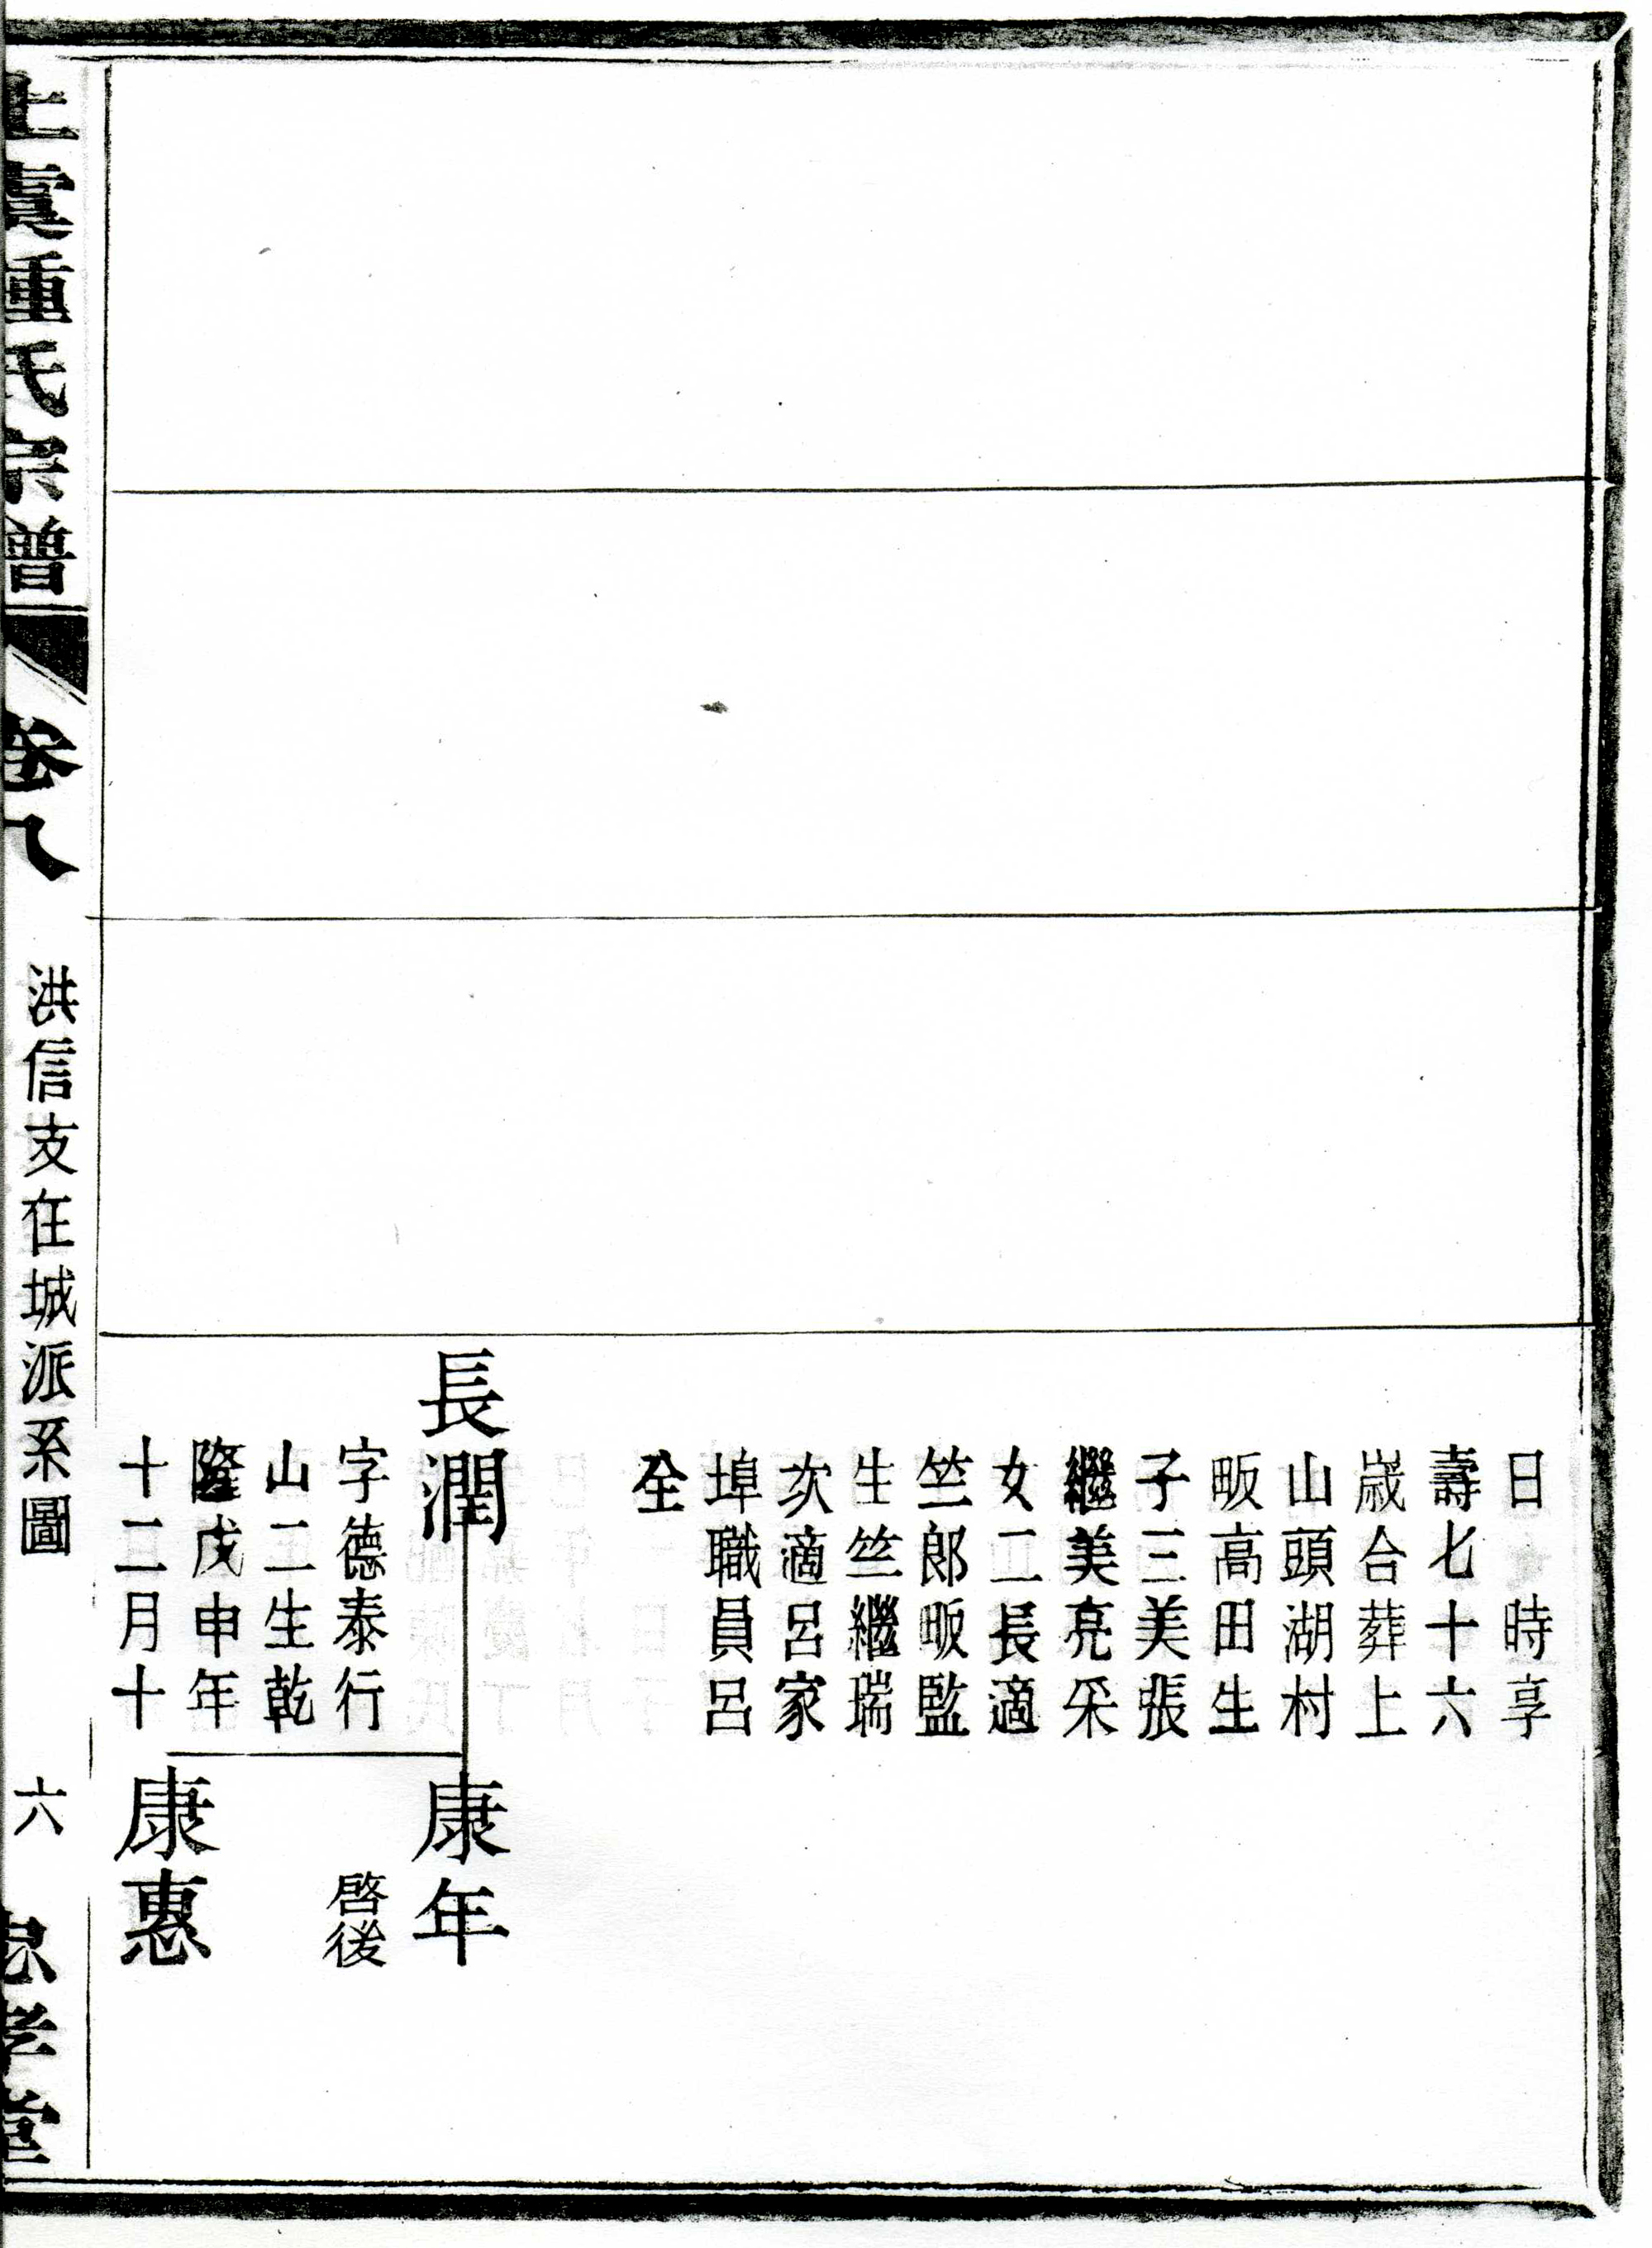 日　時享
壽七十六
嵗合葬上
山頭湖村
畈高田生
子三美張
繼美亮采
女二長適
竺郎畈監
生竺繼瑞
次適呂家
埠職員呂
全
長潤
字德泰行
山二生乾
隆戊申年
十二月十
康年
啓後
康惠
上虞鍾氏宗譜
卷八
洪信支在城派系圖
六
忠孝堂